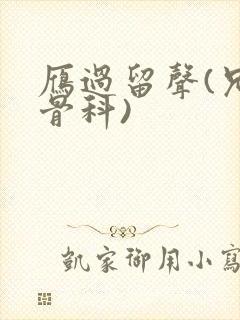 雁過留聲(兄
骨科)
凱家御用小寫